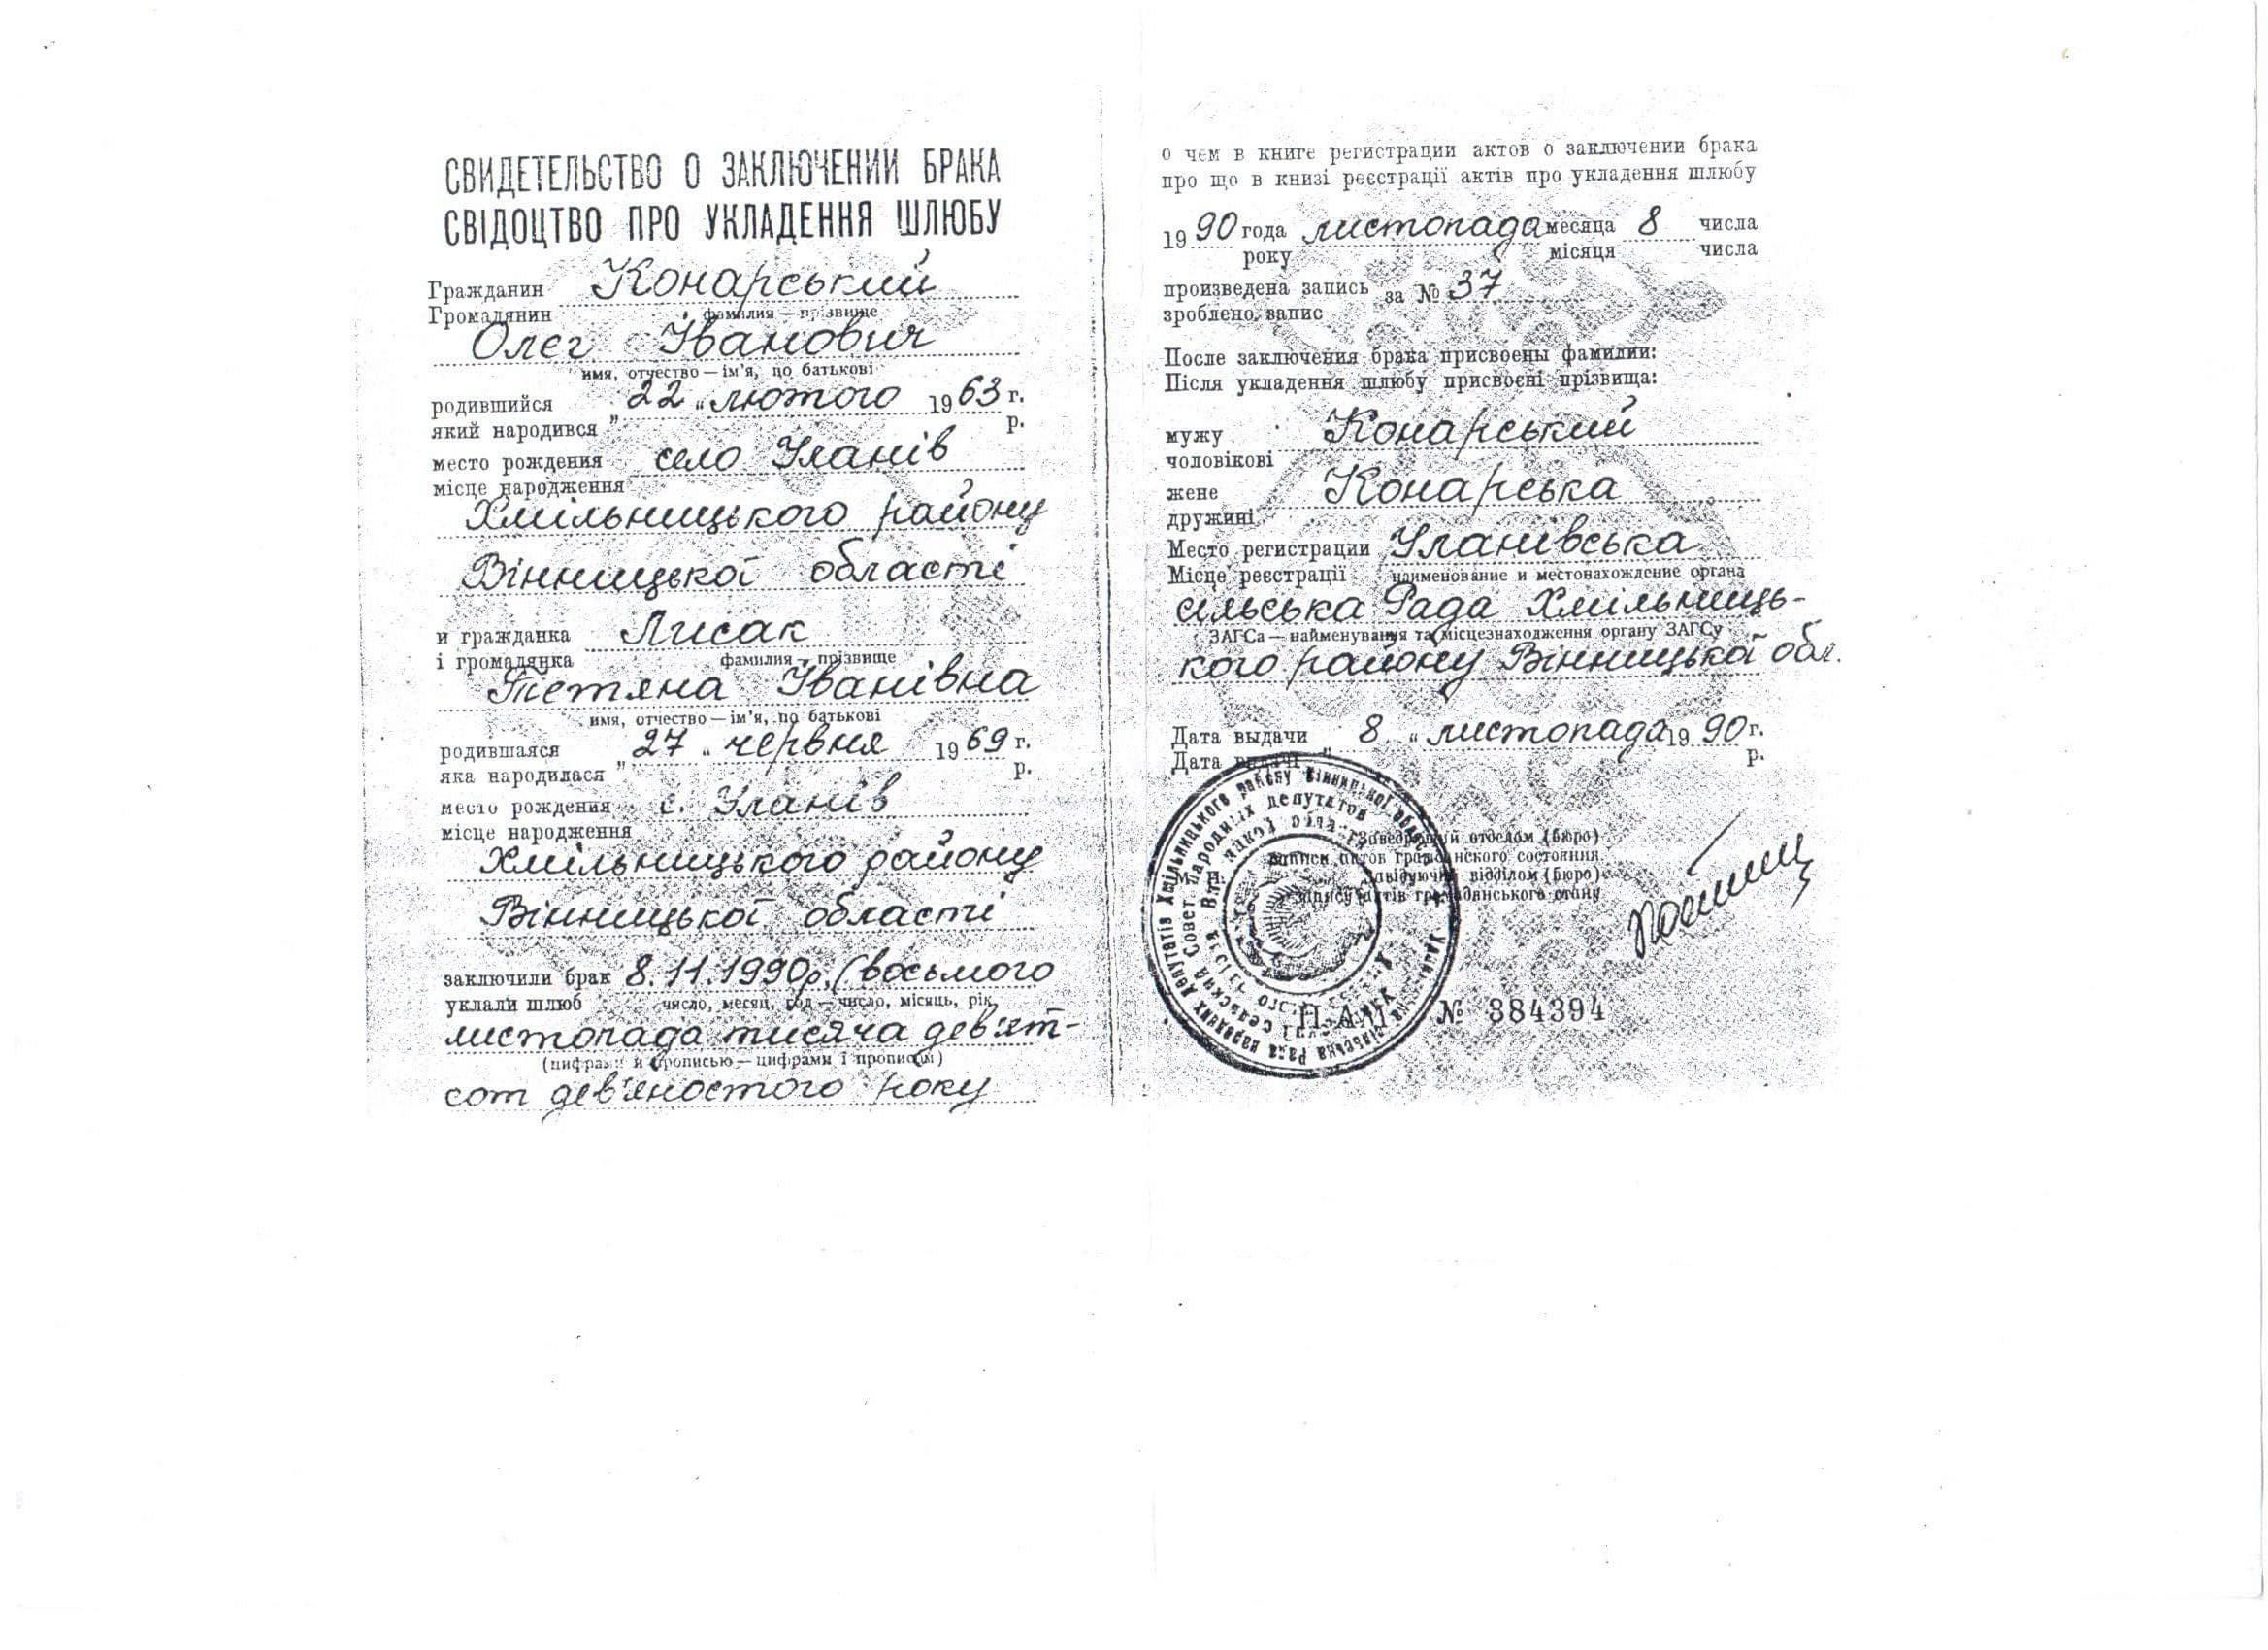 СВИДЕТЕЛЬСТВО О ЗАКЛЮЧЕНИИ БРАКА
СВІДОЦТВО ПРО УКЛАДЕННЯ ШЛЮБУ
Гражданин Конарський
Громадянин
фамилия — прізвище
Олег Іванович
имя, отчество — ім'я, по батькові
родившийся „ 22 “ лютого 1963 г.
який народився р.
место рождения село Уланів
місце народження
Хмільницького району
Вінницької області
и гражданка Лисак
і громадянка
фамилия — прізвище
Тетяна Іванівна
имя, отчество — ім'я, по батькові
родившаяся „ 27 “ червня 1969 г.
яка народилася р.
место рождения с. Уланів
місце народження
Хмільницького району
Вінницької області
заключили брак 8.11.1990р. (восьмого
уклали шлюб число, месяц, год — число, місяць, рік
листопада тисяча дев'ят-
(цифрами и прописью — цифрами і прописом)
сот дев'яностого року
о чем в книге регистрации актов о заключении брака
про що в книзі реєстрації актів про укладення шлюбу
1990 года листопада месяца 8 числа
року місяця числа
произведена запись за № 37
зроблено запис
После заключения брака присвоены фамилии:
Після укладення шлюбу присвоєні прізвища:
мужу Конарський
чоловікові
жене Конарська
дружині
Место регистрации Уланівська
Місце реєстрації наименование и местонахождение органа
сільська Рада Хмильниць-
ЗАГСа — найменування та місцезнаходження органу ЗАГСу
кого району Вінницька обл.
Дата выдачи „ 8 “ листопада 1990 г.
Дата видачі р.
Заведующий отделом (бюро)
записи актов гражданского состояния
М. П. Завідуючий відділом (бюро)
запису актів громадянського стану
№ 384394